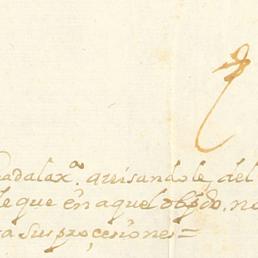 adalax.ª avisandole del
le que en aquel obpdo. no
a sus proçesiones =